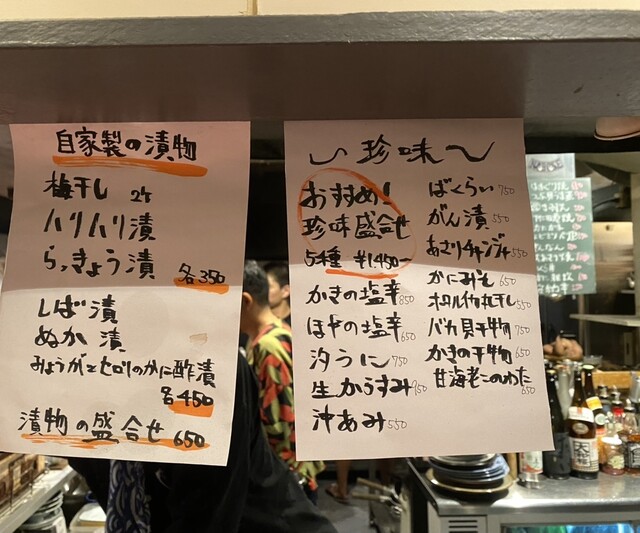 自家製の漬物
梅干し 2ケ
ハリハリ漬
らっきょう漬
各350
しば漬
ぬか漬
みょうがとセロリのかに酢漬
各450
漬物の盛合せ 650
〜珍味〜
おすすめ!
珍味盛合せ
5種 ¥1,450-
かきの塩辛 850
ほやの塩辛 650
汐うに 750
生からすみ 950
沖あみ 550
ばくらい 750
がん漬 550
あさりチャンジャ 550
かにみそ 650
ホタルイカ丸干し 550
バカ貝干物 750
かきの干物 650
甘海老このわた 650